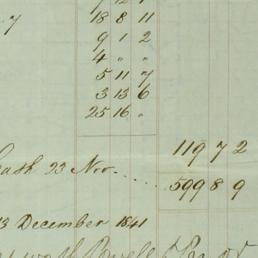 18 8 11
9 1 2
4 " "
5 11 7
3 13 6
25 16 "
119 7 2
Cash 23 Nov. . . . . . 599 8 9
13 December 1841